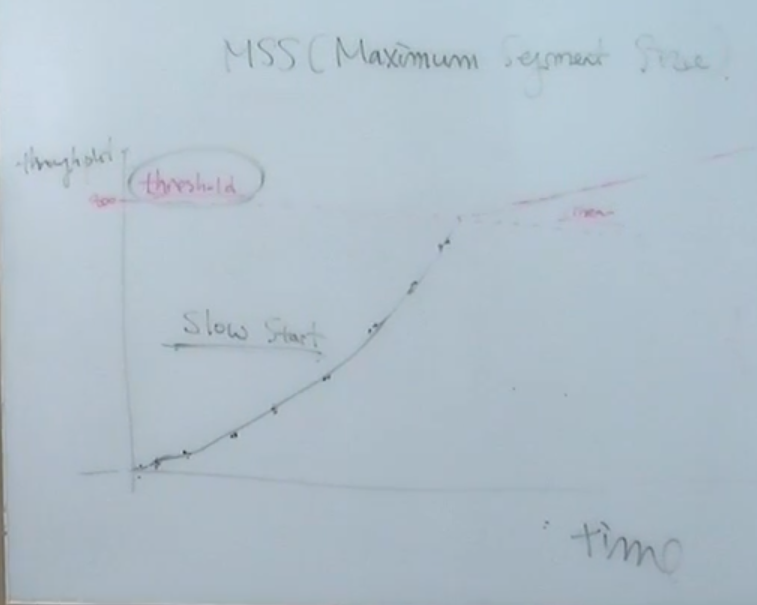 MSS (Maximum Segment Size)
throughput
threshold
Slow Start
time